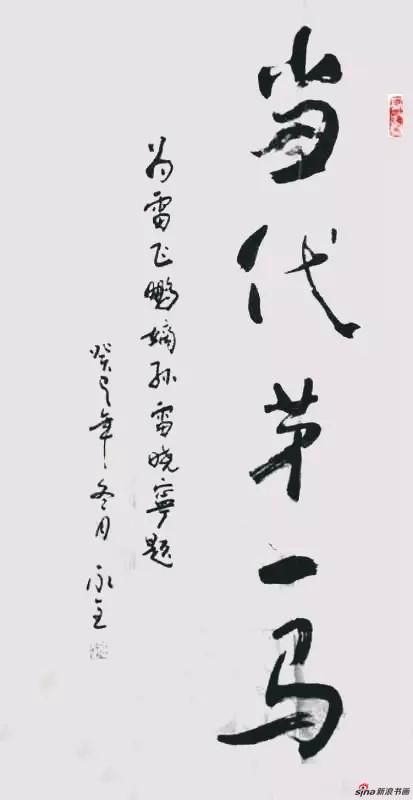 当代第一马
为雷飞鹏嫡孙雷晓寧题
癸巳年冬月
sina新浪书画